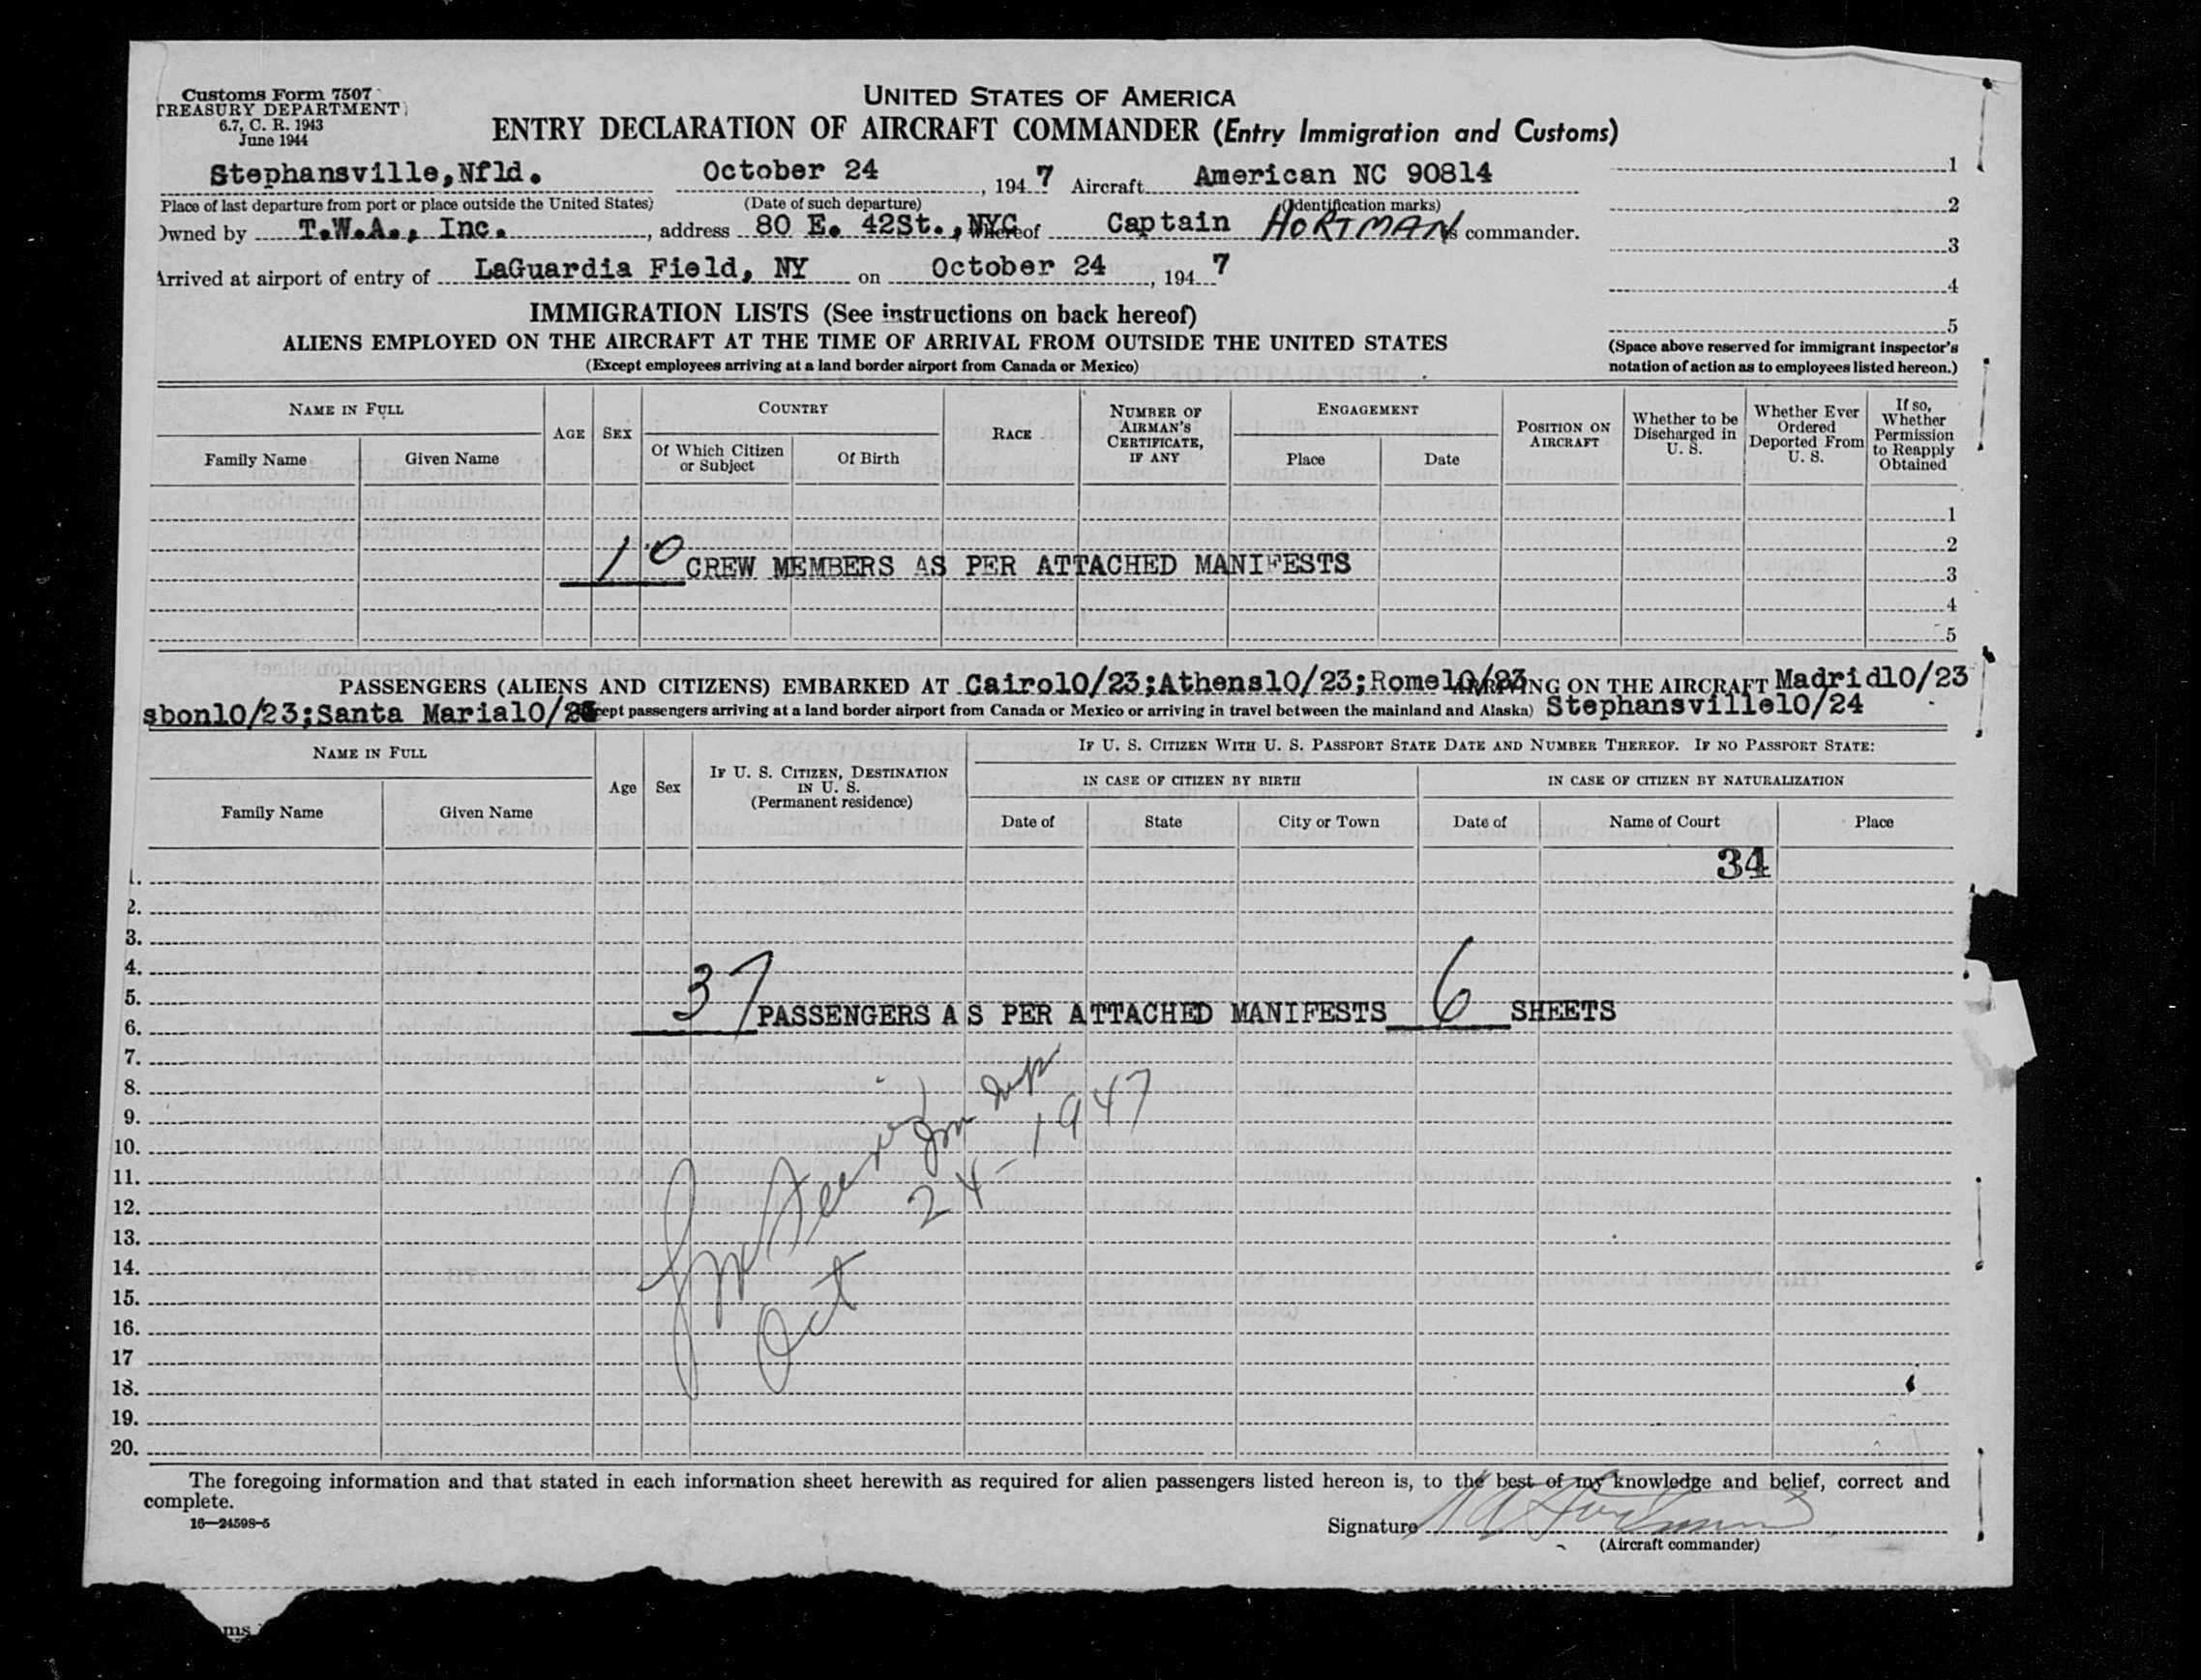 Customs Form 7507
TREASURY DEPARTMENT
6.7, C. R. 1943
June 1944
UNITED STATES OF AMERICA
ENTRY DECLARATION OF AIRCRAFT COMMANDER (Entry Immigration and Customs)
Stephansville, Nfld. October 24, 1947 Aircraft American NC 90814
Place of last departure from port or place outside the United States) (Date of such departure) (Identification marks)
Owned by T.W.A., Inc., address 80 E. 42St., NYC whereof Captain HORTMAN is commander.
Arrived at airport of entry of LaGuardia Field, NY on October 24, 1947
1
2
3
4
5
(Space above reserved for immigrant inspector's
notation of action as to employees listed hereon.)
IMMIGRATION LISTS (See instructions on back hereof)
ALIENS EMPLOYED ON THE AIRCRAFT AT THE TIME OF ARRIVAL FROM OUTSIDE THE UNITED STATES
(Except employees arriving at a land border airport from Canada or Mexico)
NAME IN FULL
Family Name Given Name
AGE SEX
COUNTRY
Of Which Citizen or Subject Of Birth
RACE
NUMBER OF AIRMAN'S CERTIFICATE, IF ANY
ENGAGEMENT
Place Date
POSITION ON AIRCRAFT
Whether to be Discharged in U. S.
Whether Ever Ordered Deported From U. S.
If so, Whether Permission to Reapply Obtained
1
2
10 CREW MEMBERS AS PER ATTACHED MANIFESTS
3
4
5
PASSENGERS (ALIENS AND CITIZENS) EMBARKED AT Cairo10/23;Athens10/23;Rome10/23 ARRIVING ON THE AIRCRAFT Madrid10/23
sbon10/23;Santa Maria10/2 cept passengers arriving at a land border airport from Canada or Mexico or arriving in travel between the mainland and Alaska) Stephansville10/24
NAME IN FULL
Family Name Given Name
Age Sex
IF U. S. CITIZEN, DESTINATION IN U. S. (Permanent residence)
IF U. S. CITIZEN WITH U. S. PASSPORT STATE DATE AND NUMBER THEREOF. IF NO PASSPORT STATE:
IN CASE OF CITIZEN BY BIRTH IN CASE OF CITIZEN BY NATURALIZATION
Date of State City or Town Date of Name of Court Place
34
1.
2.
3.
4.
5.
37 PASSENGERS AS PER ATTACHED MANIFESTS 6 SHEETS
6.
7.
8.
9.
10.
11.
12.
13.
14.
15.
16.
17
18.
19.
20.
Oct 24-1947
The foregoing information and that stated in each information sheet herewith as required for alien passengers listed hereon is, to the best of my knowledge and belief, correct and
complete.
16—24598-5
Signature Hortman
(Aircraft commander)
ms